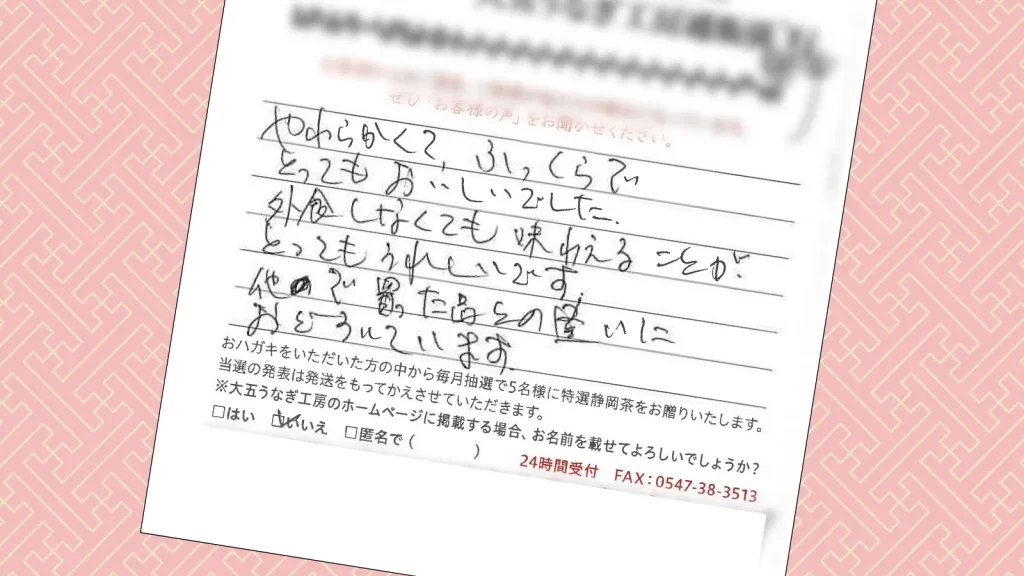 ぜひ「お客様の声」をお聞かせください。
やわらかくて、ふっくらで
とってもおいしいでした.
外食しなくても味わえることが.
とってもうれしいです.
他ので買った品との違いに
おどろいています.
おハガキをいただいた方の中から毎月抽選で5名様に特選静岡茶をお贈りいたします。
当選の発表は発送をもってかえさせていただきます。
※大五うなぎ工房のホームページに掲載する場合、お名前を載せてよろしいでしょうか?
□はい ☑いいえ □匿名で( )
24時間受付 FAX:0547-38-3513